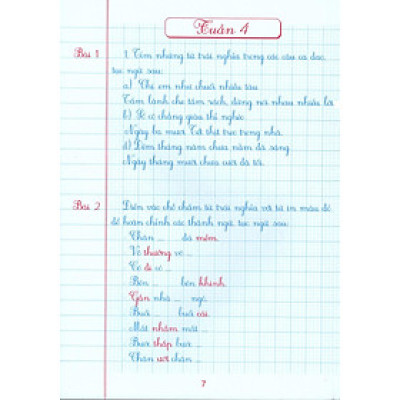 Tuần 4
Bài 1 1. Tìm những từ trái nghĩa trong các câu ca dao,
tục ngữ sau:
a) Chị em như chuối nhiều tàu
Tấm lành che tấm rách, đừng nói nhau nhiều lời
b) Ai có chẳng giàu thì nghèo
Ngày ba mươi Tết thịt treo trong nhà.
d) Đêm tháng năm chưa nằm đã sáng
Ngày tháng mười chưa cười đã tối.
Bài 2 Điền vào chỗ chấm từ trái nghĩa với từ in màu đỏ
để hoàn chỉnh các thành ngữ, tục ngữ sau:
Chân ... đá mềm.
Vô thưởng vô ...
Có đi có ...
Bên ... bên khinh.
Gần nhà ... ngõ.
Buổi ... buổi cái.
Mắt nhắm mắt ...
Bước thấp bước ...
Chân ướt chân ...
7